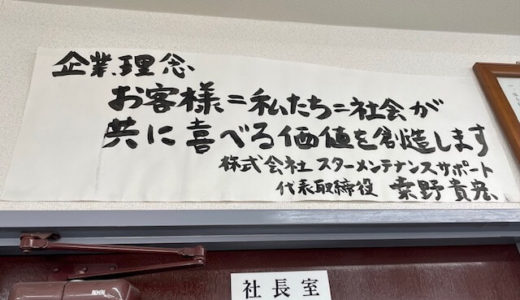 企業理念
お客様=私たち=社会が
共に喜べる価値を創造します
株式会社 スターメンテナンスサポート
代表取締役 栗野貴宏
社長室